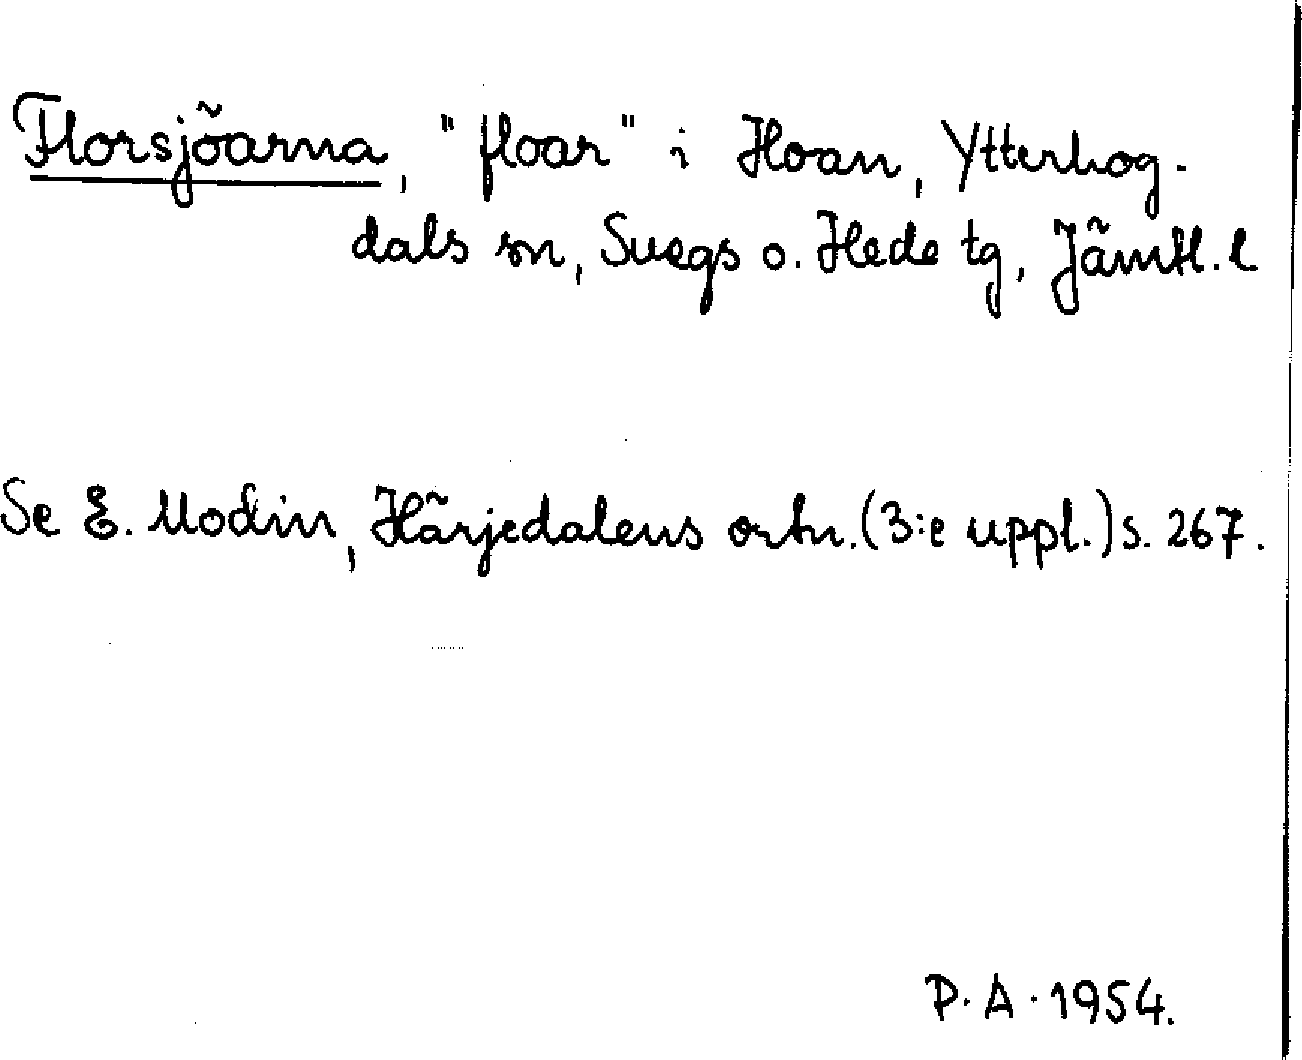 Florsjöarna, "floar" i Hoan, Ytterhog-
dals sn, Svegs o. Hede tg, Jämtl. l
Se E. Modin, Härjedalens ortn. (3:e uppl.) s. 267.
P. A. 1954.